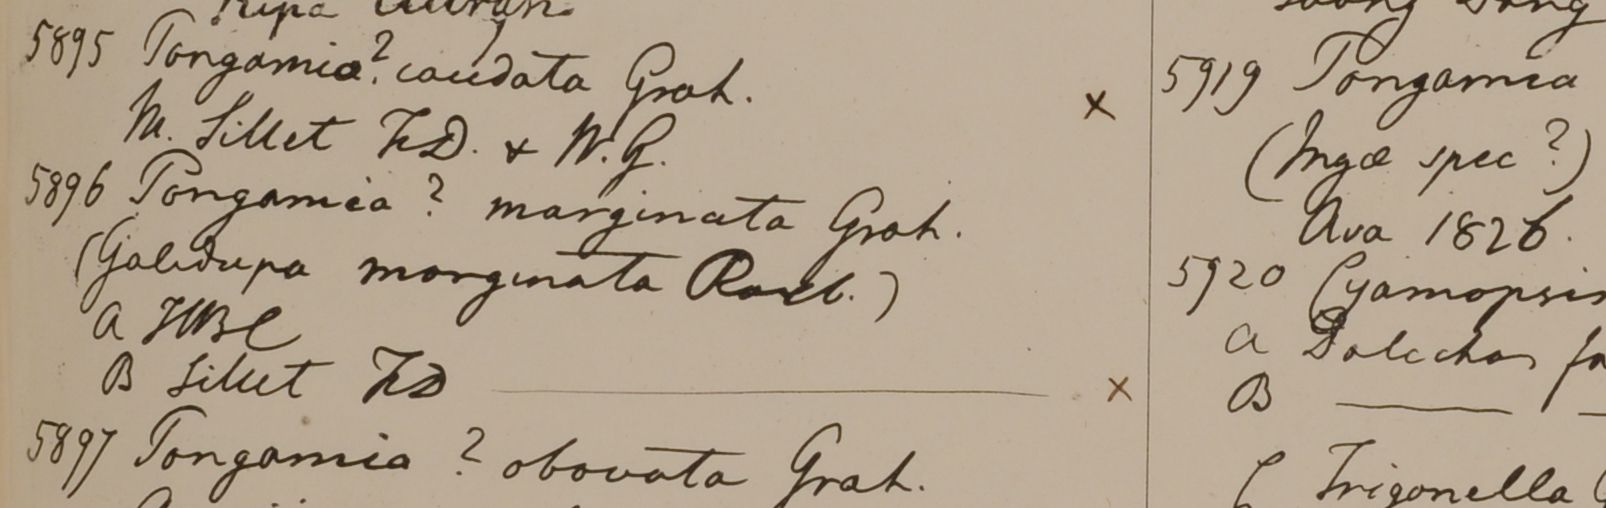 Ripa
5895 Pongamia? caudata Grah.
M. Sillet F.D. & W.G.
5896 Pongamia? marginata Grah.
(Galedupa marginata Roxb.)
a HBC
B Sillet FD
5897 Pongamia? obovata Grah.
5919 Pongamia
(Inga spec?)
Ava 1826.
5920 Cyamopsis
a Dolichos fa
B
C Trigonella